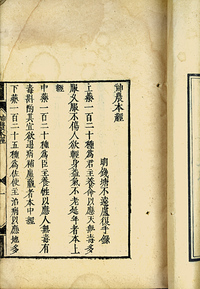 神農本經
明錢塘不遠盧復手錄
上藥一百二十種為君主養命以應天無毒多
服久服不傷人欲輕身益氣不老延年者本上
經
中藥一百二十種為臣主養性以應人無毒有
毒斟酌其宜欲遏病補羸者本中經
下藥一百二十五種為佐使主治病以應地多